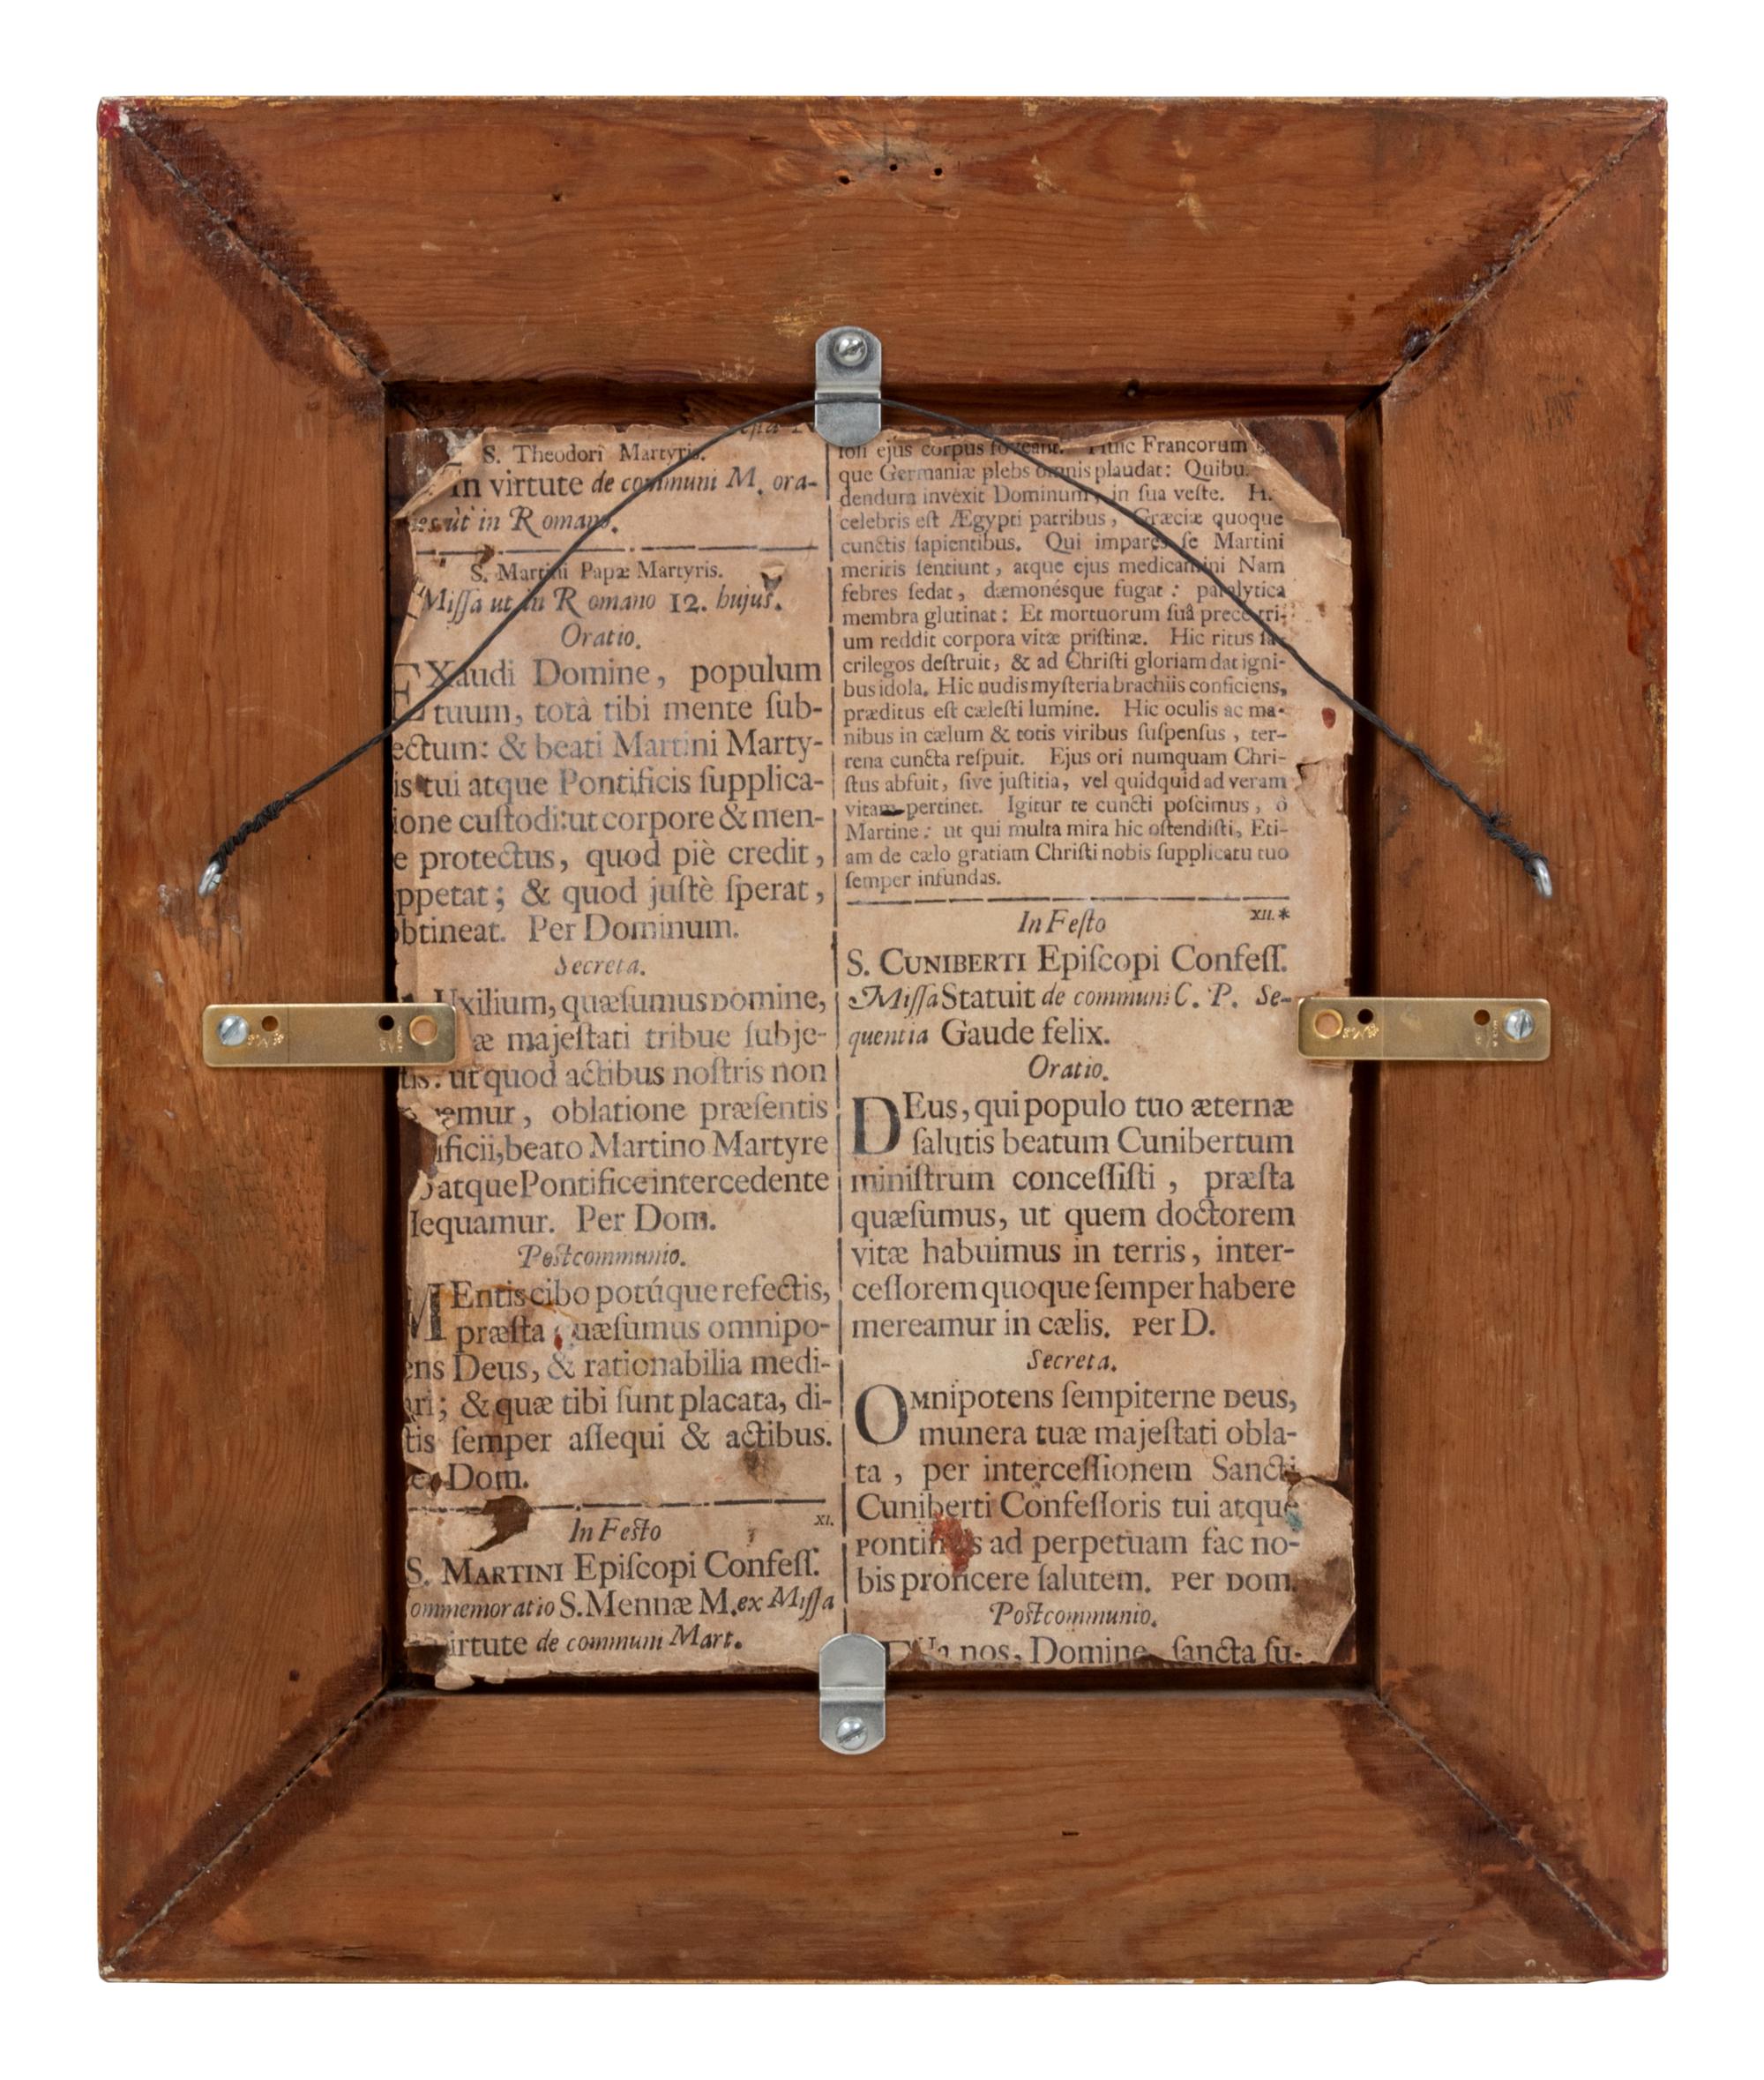 S. Theodori Martyris.
In virtute de communi M. ora-
ut in Romano.
S. Martini Papæ Martyris.
Miſſa ut in Romano 12. hujus.
Oratio.
EXaudi Domine, populum
tuum, totâ tibi mente ſub-
ectum: & beati Martini Marty-
is tui atque Pontificis ſupplica-
ione cuſtodi: ut corpore & men-
e protectus, quod piè credit,
ppetat; & quod juſtè ſperat,
obtineat. Per Dominum.
Secreta.
Uxilium, quæſumus Domine,
æ majeſtati tribue ſubje-
tis: ut quod actibus noſtris non
emur, oblatione præſentis
ificii, beato Martino Martyre
atque Pontifice intercedente
ſequamur. Per Dom.
Poſtcommunio.
MEntis cibo potúque refectis,
præſta quæſumus omnipo-
ens Deus, & rationabilia medi-
ri; & quæ tibi ſunt placata, di-
tis ſemper aſſequi & actibus.
Dom.
In Feſto XI.
S. MARTINI Epiſcopi Confeſſ.
ommemoratio S. Mennæ M. ex Miſſa
irtute de communi Mart.
ejus corpus foveant. Huic Francorum
que Germaniæ plebs omnis plaudat: Quibu
dendum invexit Dominum, in ſua veſte. H
celebris eſt Ægypti patribus, Græciæ quoque
cunctis ſapientibus. Qui impares ſe Martini
meritis ſentiunt, atque ejus medicamini Nam
febres ſedat, dæmonéſque fugat: paralytica
membra glutinat: Et mortuorum ſuâ prece tri-
um reddit corpora vitæ priſtinæ. Hic ritus ſa-
crilegos deſtruit, & ad Chriſti gloriam dat igni-
bus idola. Hic nudis myſteria brachiis conficiens,
præditus eſt cæleſti lumine. Hic oculis ac ma-
nibus in cælum & totis viribus ſuſpenſus, ter-
rena cuncta reſpuit. Ejus ori numquam Chri-
ſtus abfuit, ſive juſtitia, vel quidquid ad veram
vitam pertinet. Igitur te cuncti poſcimus, ô
Martine: ut qui multa mira hic oſtendiſti, Eti-
am de cælo gratiam Chriſti nobis ſupplicatu tuo
ſemper infundas.
In Feſto XII.*
S. CUNIBERTI Epiſcopi Confeſſ.
Miſſa Statuit de communi C. P. Se-
quentia Gaude felix.
Oratio.
DEus, qui populo tuo æternæ
ſalutis beatum Cunibertum
miniſtrum conceſſiſti, præſta
quæſumus, ut quem doctorem
vitæ habuimus in terris, inter-
ceſſorem quoque ſemper habere
mereamur in cælis. Per D.
Secreta.
OMnipotens ſempiterne Deus,
munera tuæ majeſtati obla-
ta, per interceſſionem Sancti
Cuniberti Confeſſoris tui atque
Pontificis ad perpetuam fac no-
bis proficere ſalutem. Per Dom.
Poſtcommunio.
nos, Domine, ſancta ſu-